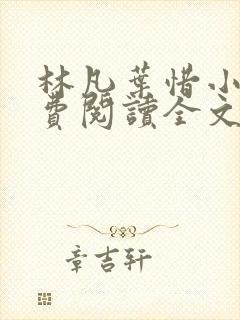 林凡葉惜小
費閱讀全文
章吉轩